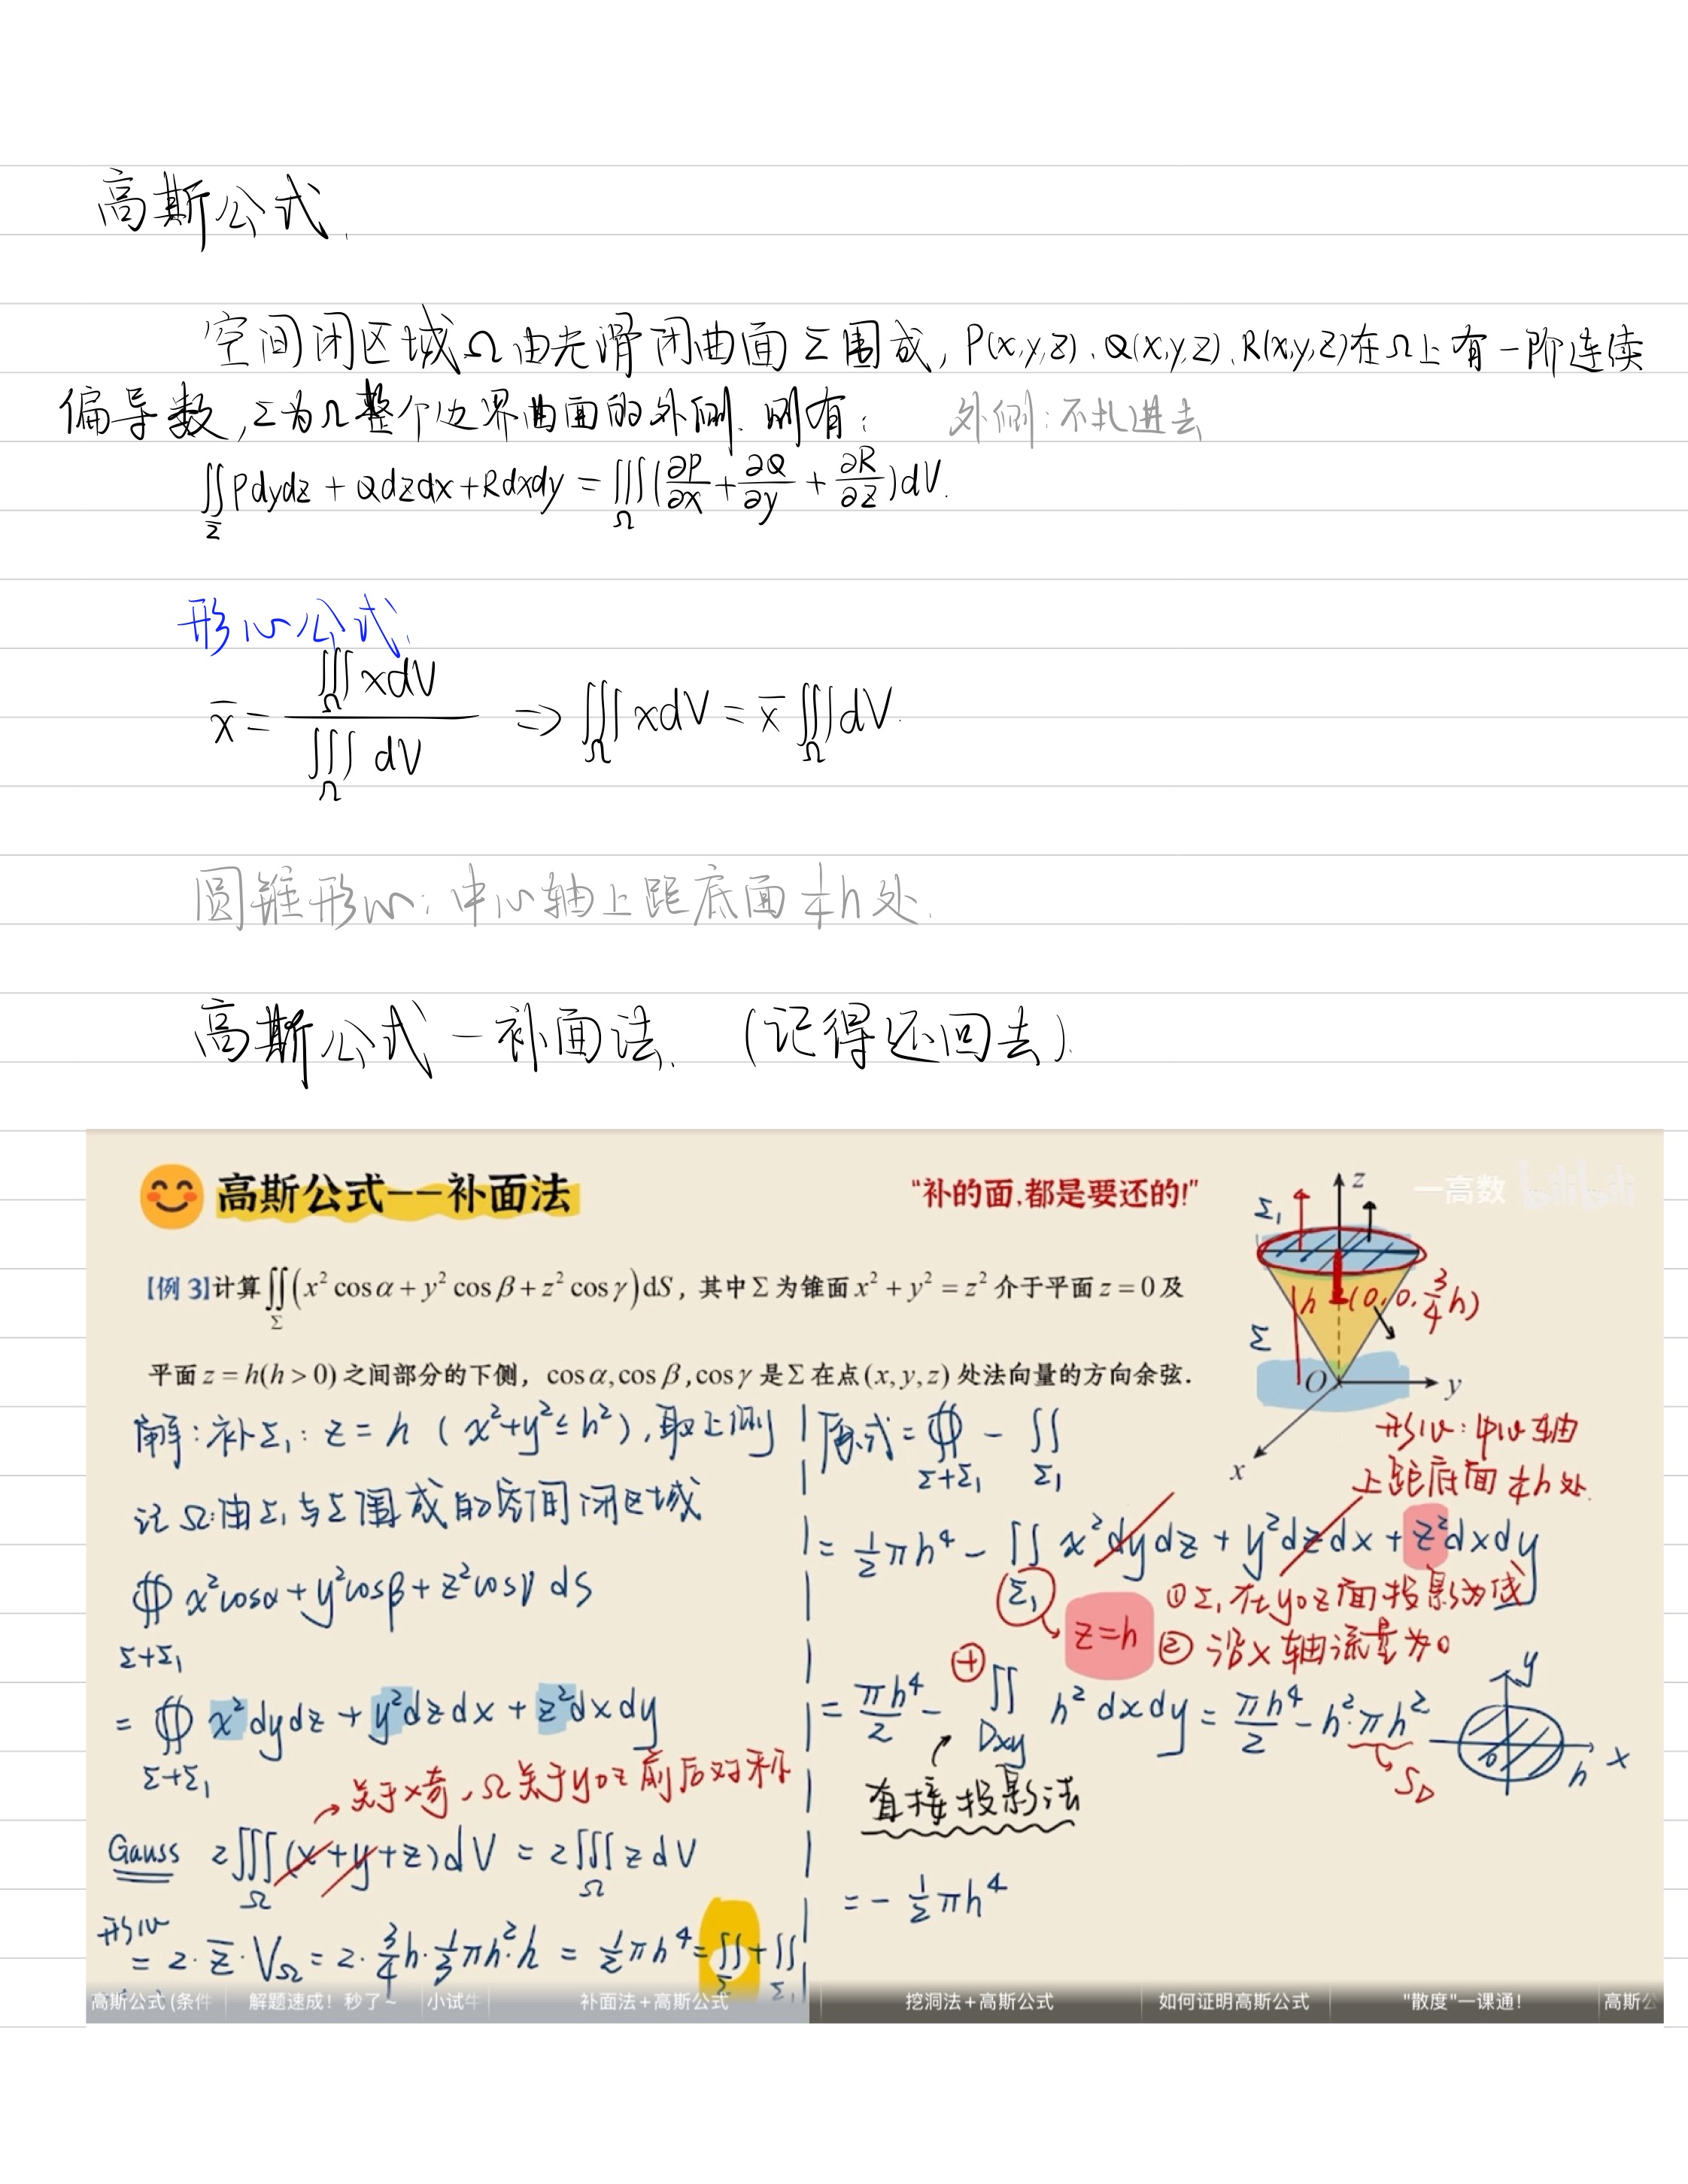 高斯公式.
空间闭区域Ω由光滑闭曲面Σ围成, P(x,y,z)、Q(x,y,z)、R(x,y,z)在Ω上有一阶连续
偏导数,Σ为Ω整个边界曲面的外侧.则有: 外侧:不扎进去
∬_Σ Pdydz + Qdzdx + Rdxdy = ∭_Ω (∂P/∂x + ∂Q/∂y + ∂R/∂z)dV.
形心公式.
x̄ = ∭_Ω xdV / ∭_Ω dV ⇒ ∭_Ω xdV = x̄ ∭_Ω dV.
圆锥形心:中心轴上距底面¼h处.
高斯公式-补面法. (记得还回去).
高斯公式--补面法
“补的面,都是要还的!”
一高数 bilibili
【例 3】计算∬_Σ (x² cos α + y² cos β + z² cos γ) dS，其中 Σ 为锥面 x² + y² = z² 介于平面 z = 0 及
平面 z = h(h > 0) 之间部分的下侧，cos α, cos β, cos γ 是 Σ 在点 (x, y, z) 处法向量的方向余弦.
z
Σ₁
h
(0,0,¾h)
Σ
O
y
x
形心:中心轴
上距底面¼h处.
解:补Σ₁: z = h (x²+y²≤h²),取上侧
记Ω:由Σ₁与Σ围成的空间闭区域
∯_{Σ+Σ₁} x²cosα + y²cosβ + z²cosγ dS
= ∯_{Σ+Σ₁} x²dydz + y²dzdx + z²dxdy
关于x奇,Ω关于yoz前后对称
Gauss 2∭_Ω (x+y+z)dV = 2∭_Ω zdV
形心
= 2·z̄·V_Ω = 2·¾h·⅓πh²·h = ½πh⁴ = ∬_Σ + ∬_Σ₁
原式 = ∯_{Σ+Σ₁} - ∬_Σ₁
= ½πh⁴ - ∬_Σ₁ x²dydz + y²dzdx + z²dxdy
z=h
①Σ₁在yoz面投影为线
②沿x轴流量为0
⊕
= πh⁴/2 - ∬_Dxy h²dxdy = πh⁴/2 - h²·πh²
S_D
y
O
h
x
直接投影法
= -½πh⁴
高斯公式 (条件
解题速成！秒了~
小试牛
补面法+高斯公式
挖洞法+高斯公式
如何证明高斯公式
"散度"一课通！
高斯公